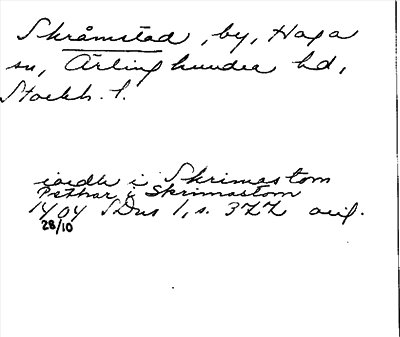 Skråmstad, by, Haga
sn, Ärlinghundra hd,
Stockh. l.
iordh i Skrimastom
Pethar i Skrimastom
1404 SDns 1, s. 322 orig.
28/10